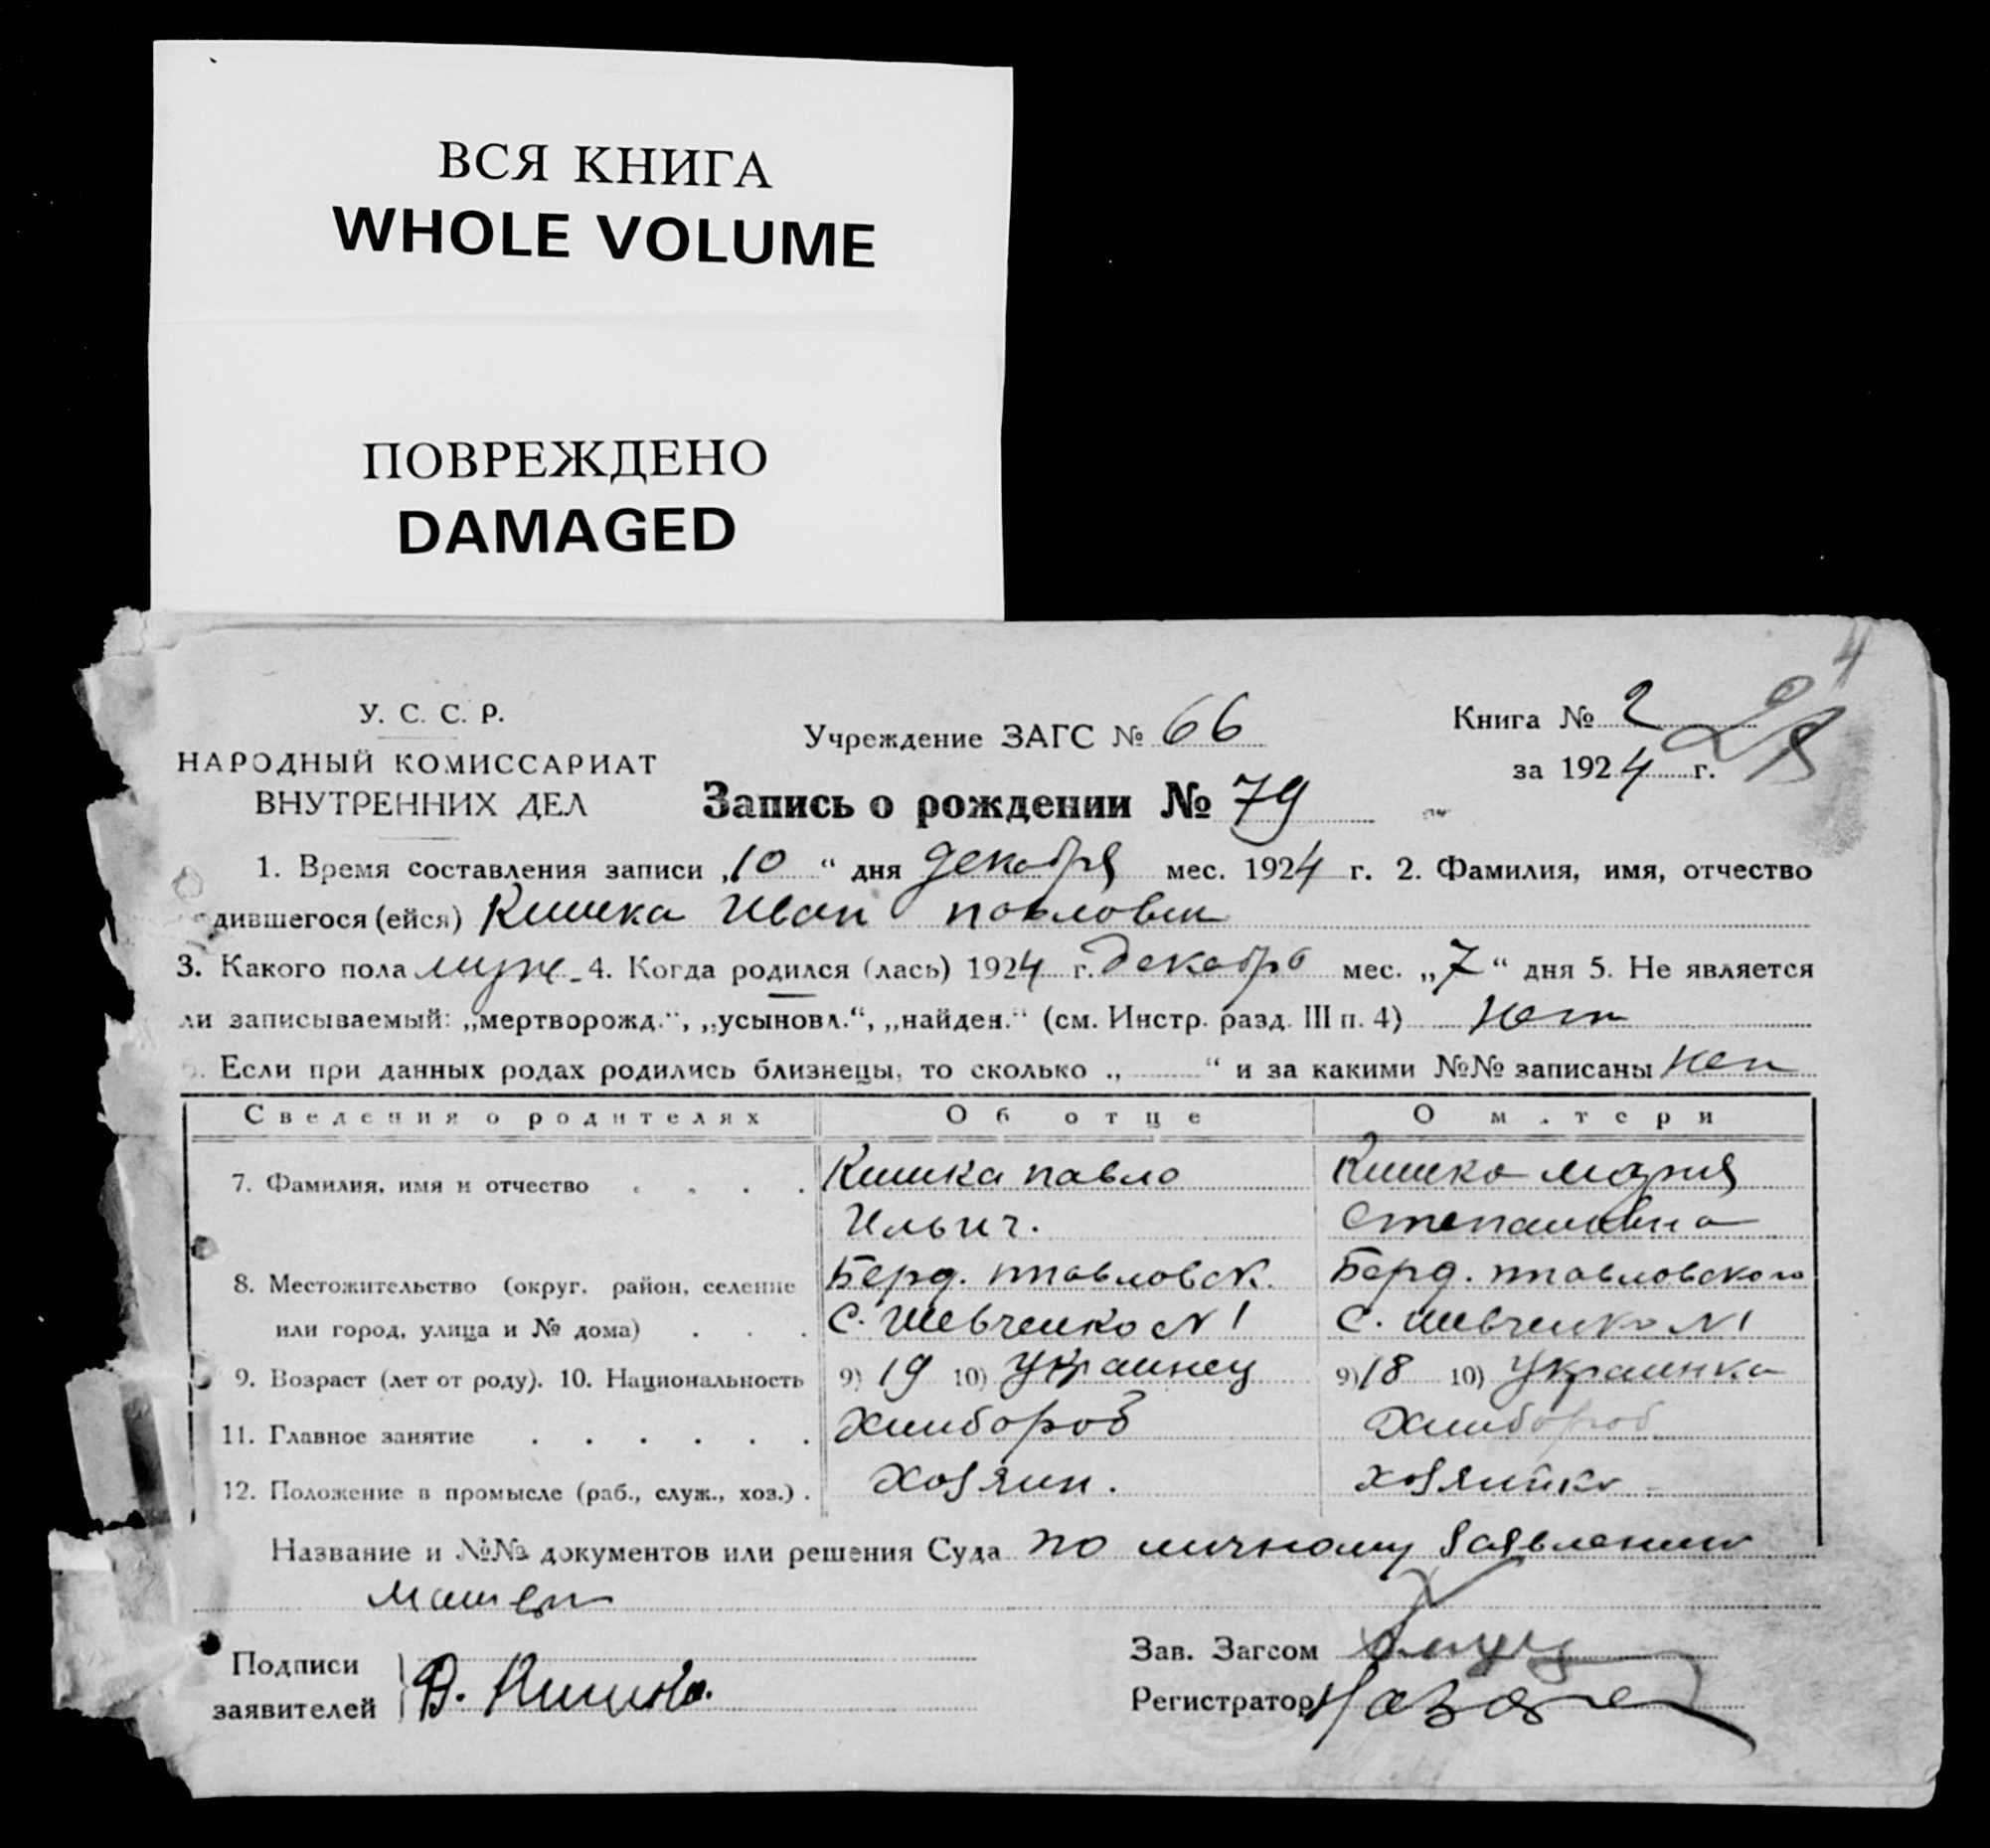 ВСЯ КНИГА
WHOLE VOLUME
ПОВРЕЖДЕНО
DAMAGED
4
У. С. С. Р.
НАРОДНЫЙ КОМИССАРИАТ
ВНУТРЕННИХ ДЕЛ
Учреждение ЗАГС № 66
Книга № 2
за 1924 г.
Запись о рождении № 79
1. Время составления записи „10“ дня декабря мес. 1924 г. 2. Фамилия, имя, отчество
дившегося (ейся) Кишка Иван Павлович
3. Какого пола муж. 4. Когда родился (лась) 1924 г. декабря мес. „7“ дня 5. Не является
ли записываемый: „мертворожд.“, „усыновл.“, „найден.“ (см. Инстр. разд. III п. 4) Нет
Если при данных родах родились близнецы, то сколько „ “ и за какими №№ записаны нет
Сведения о родителях Об отце О м.тери
7. Фамилия, имя и отчество . . . . Кишка Павло Кишка Мария
Ильич. Степановна
8. Местожительство (округ, район, селение Берд. Павловск. Берд. Павловского
или город, улица и № дома) . . . С. Шевченко № 1 С. Шевченко № 1
9. Возраст (лет от роду). 10. Национальность 9) 19 10) Украинец 9) 18 10) Украинка
11. Главное занятие . . . . . . Хлибороб Хлибороб
12. Положение в промысле (раб., служ., хоз.) . Хозяин. Хозяйка
Название и №№ документов или решения Суда по личному заявлению
Матери
Подписи
заявителей
Зав. Загсом
Регистратор